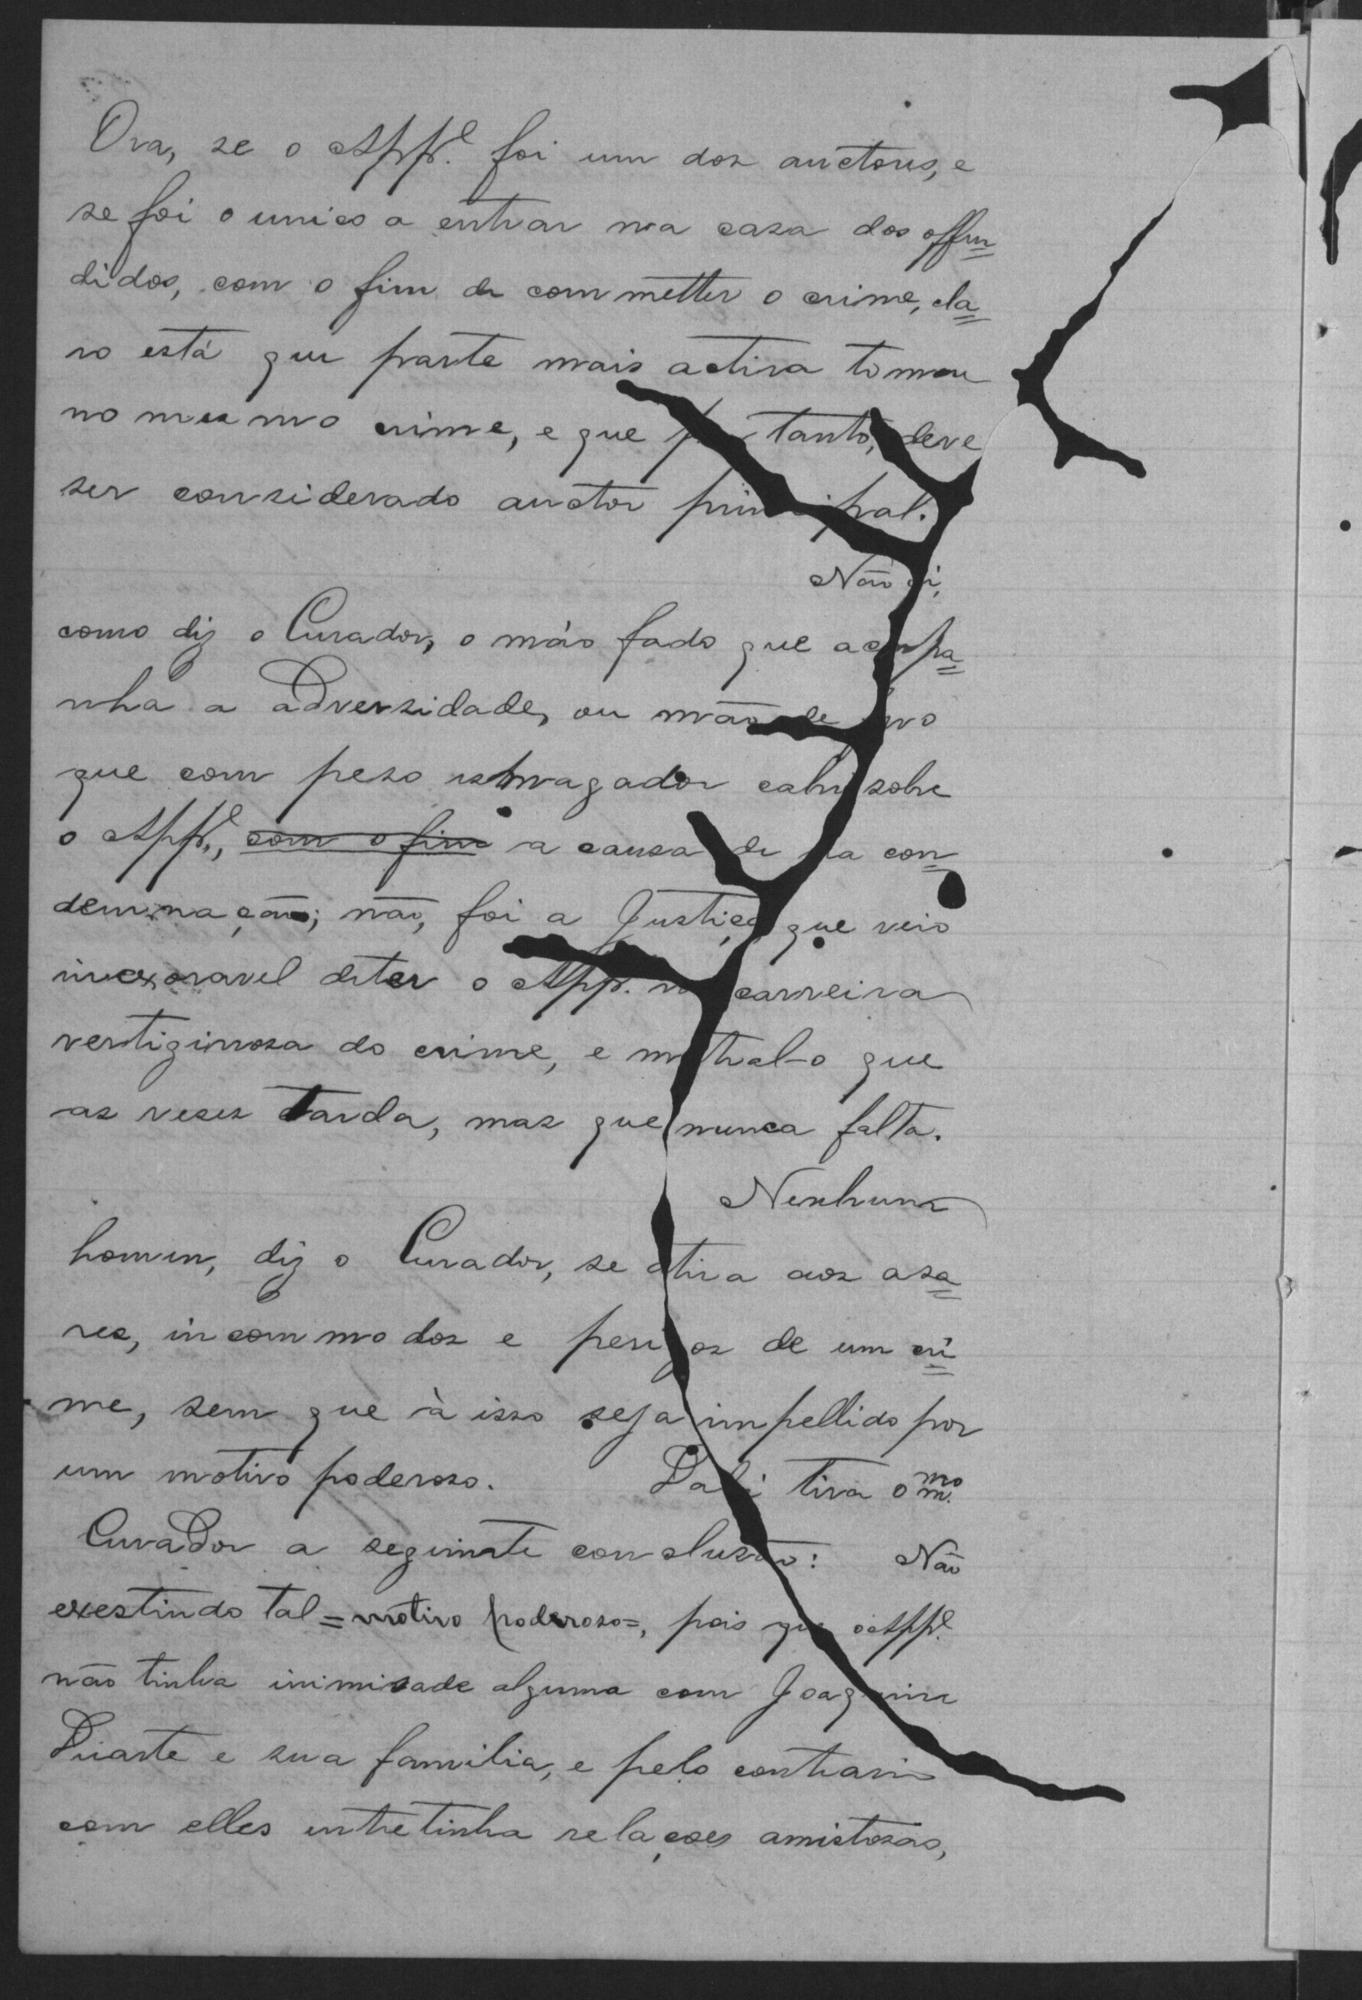 Ora, se o App.e foi um dos auctores, e
se foi o unico a entrar na casa dos offen=
didos, com o fim de commetter o crime, cla=
ro está que parte mais activa tomou
no mesmo crime, e que portanto, deve
ser considerado auctor principal.
Não foi,
como diz o Curador, o máo fado que acompa=
nha a adversidade, ou mão de ferro
que com peso esmagador cahiu sobre
o App.e, com o fim a causa de sua con=
demnação; não, foi a Justiça que veio
inexoravel deter o App. na carreira
vertiginosa do crime, e mostral-o que
as veses tarda, mas que nunca falta.
Nenhum
homem, diz o Curador, se atira aos asa=
res, incommodos e perigos de um cri=
me, sem que à isso seja impellido por
um motivo poderoso. Dahi tira o m.mo
Curador a seguinte conclusão: Não
exestindo tal =motivo poderoso=, pois que o App.e
não tinha inimisade alguma com Joaquim
Duarte e sua familia, e pelo contrario
com elles entretinha relações amistosas,